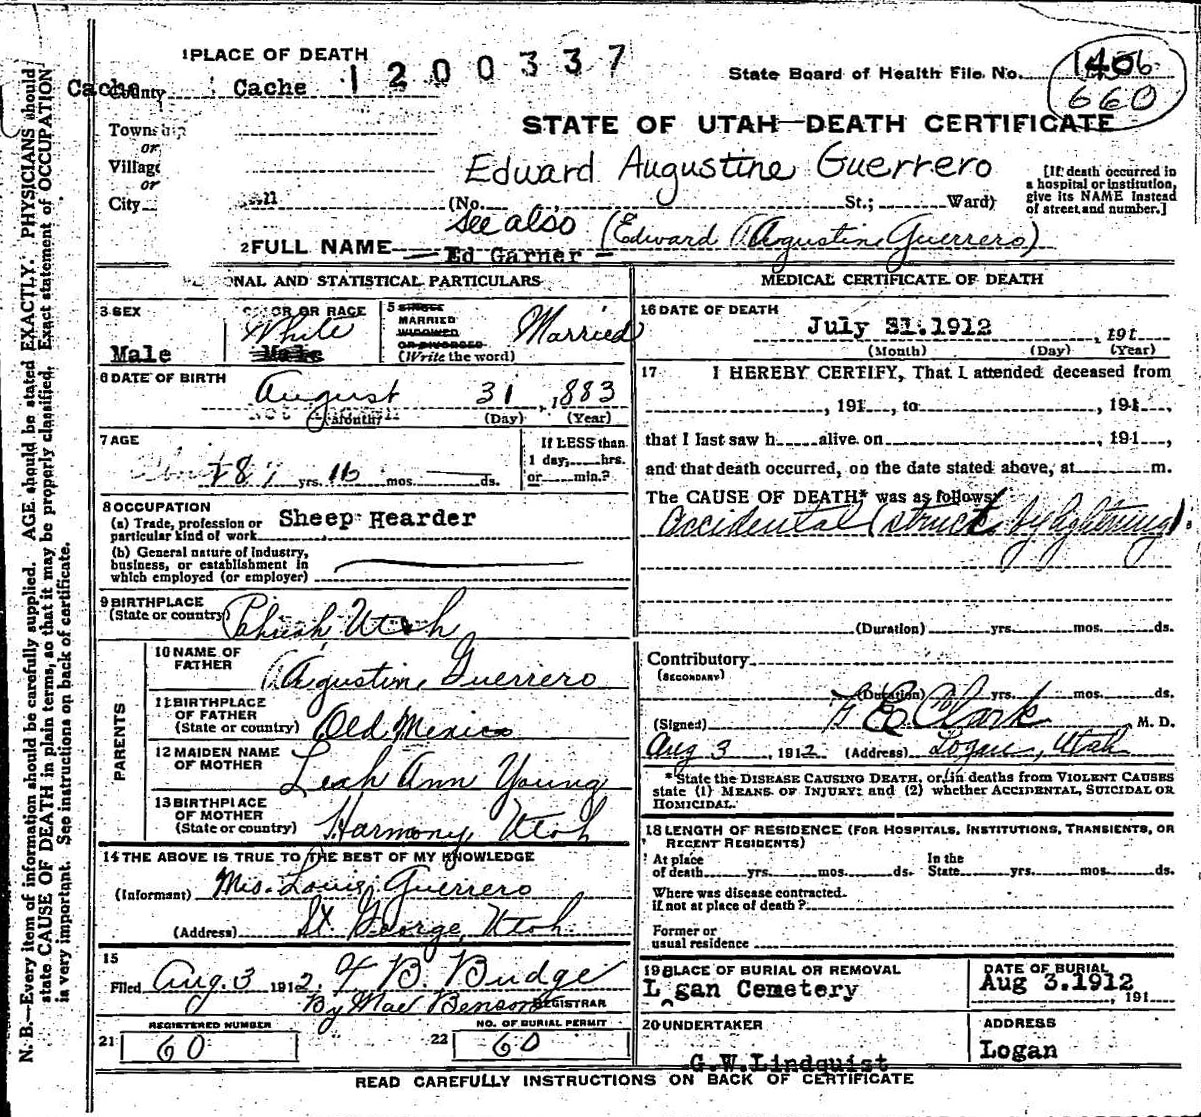 1 PLACE OF DEATH
1200337
State Board of Health File No. 1406
660
Cache County Cache
STATE OF UTAH—DEATH CERTIFICATE
Township
or
Village
or
City
Edward Augustine Guerrero
(No. St.; Ward)
[If death occurred in a hospital or institution, give its NAME instead of street and number.]
See also (Edward Augustine Guerrero)
2 FULL NAME Ed Garner
PERSONAL AND STATISTICAL PARTICULARS
3 SEX
Male
COLOR OR RACE
White
Male
5 SINGLE
MARRIED
WIDOWED
OR DIVORCED
(Write the word)
Married
6 DATE OF BIRTH
August 31, 1883
(Month) (Day) (Year)
7 AGE
yrs. mos. ds.
If LESS than
1 day, hrs.
or min.?
8 OCCUPATION
(a) Trade, profession or
particular kind of work
Sheep Hearder
(b) General nature of industry,
business, or establishment in
which employed (or employer)
9 BIRTHPLACE
(State or country)
Utah
PARENTS
10 NAME OF
FATHER
Augustine Guerrero
11 BIRTHPLACE
OF FATHER
(State or country)
Old Mexico
12 MAIDEN NAME
OF MOTHER
Leah Ann Young
13 BIRTHPLACE
OF MOTHER
(State or country)
Harmony, Utah
14 THE ABOVE IS TRUE TO THE BEST OF MY KNOWLEDGE
(Informant) Mrs. Louis Guerrero
(Address) St. George, Utah
15
Filed Aug. 3 1912. B Budge
By Mae Benson REGISTRAR
REGISTERED NUMBER
21 60
NO. OF BURIAL PERMIT
22 60
MEDICAL CERTIFICATE OF DEATH
16 DATE OF DEATH
July 31.1912, 191
(Month) (Day) (Year)
17 I HEREBY CERTIFY, That I attended deceased from
, 191 , to , 191 ,
that I last saw h alive on , 191 ,
and that death occurred, on the date stated above, at m.
The CAUSE OF DEATH* was as follows:
Accidental (struck by lightning).
(Duration) yrs. mos. ds.
Contributory
(SECONDARY)
(Duration) yrs. mos. ds.
(Signed) Clark, M. D.
Aug 3, 1912 (Address) Logan, Utah
*State the DISEASE CAUSING DEATH, or, in deaths from VIOLENT CAUSES
state (1) MEANS OF INJURY; and (2) whether ACCIDENTAL, SUICIDAL OR
HOMICIDAL.
18 LENGTH OF RESIDENCE (FOR HOSPITALS, INSTITUTIONS, TRANSIENTS, OR
RECENT RESIDENTS)
At place
of death yrs. mos. ds.
In the
State yrs. mos. ds.
Where was disease contracted.
if not at place of death?
Former or
usual residence
19 PLACE OF BURIAL OR REMOVAL
Logan Cemetery
DATE OF BURIAL
Aug 3.1912, 191
20 UNDERTAKER
G.W.Lindquist
ADDRESS
Logan
READ CAREFULLY INSTRUCTIONS ON BACK OF CERTIFICATE
N. B.—Every item of information should be carefully supplied. AGE should be stated EXACTLY. PHYSICIANS should
state CAUSE OF DEATH in plain terms, so that it may be properly classified. Exact statement of OCCUPATION
is very important. See instructions on back of certificate.